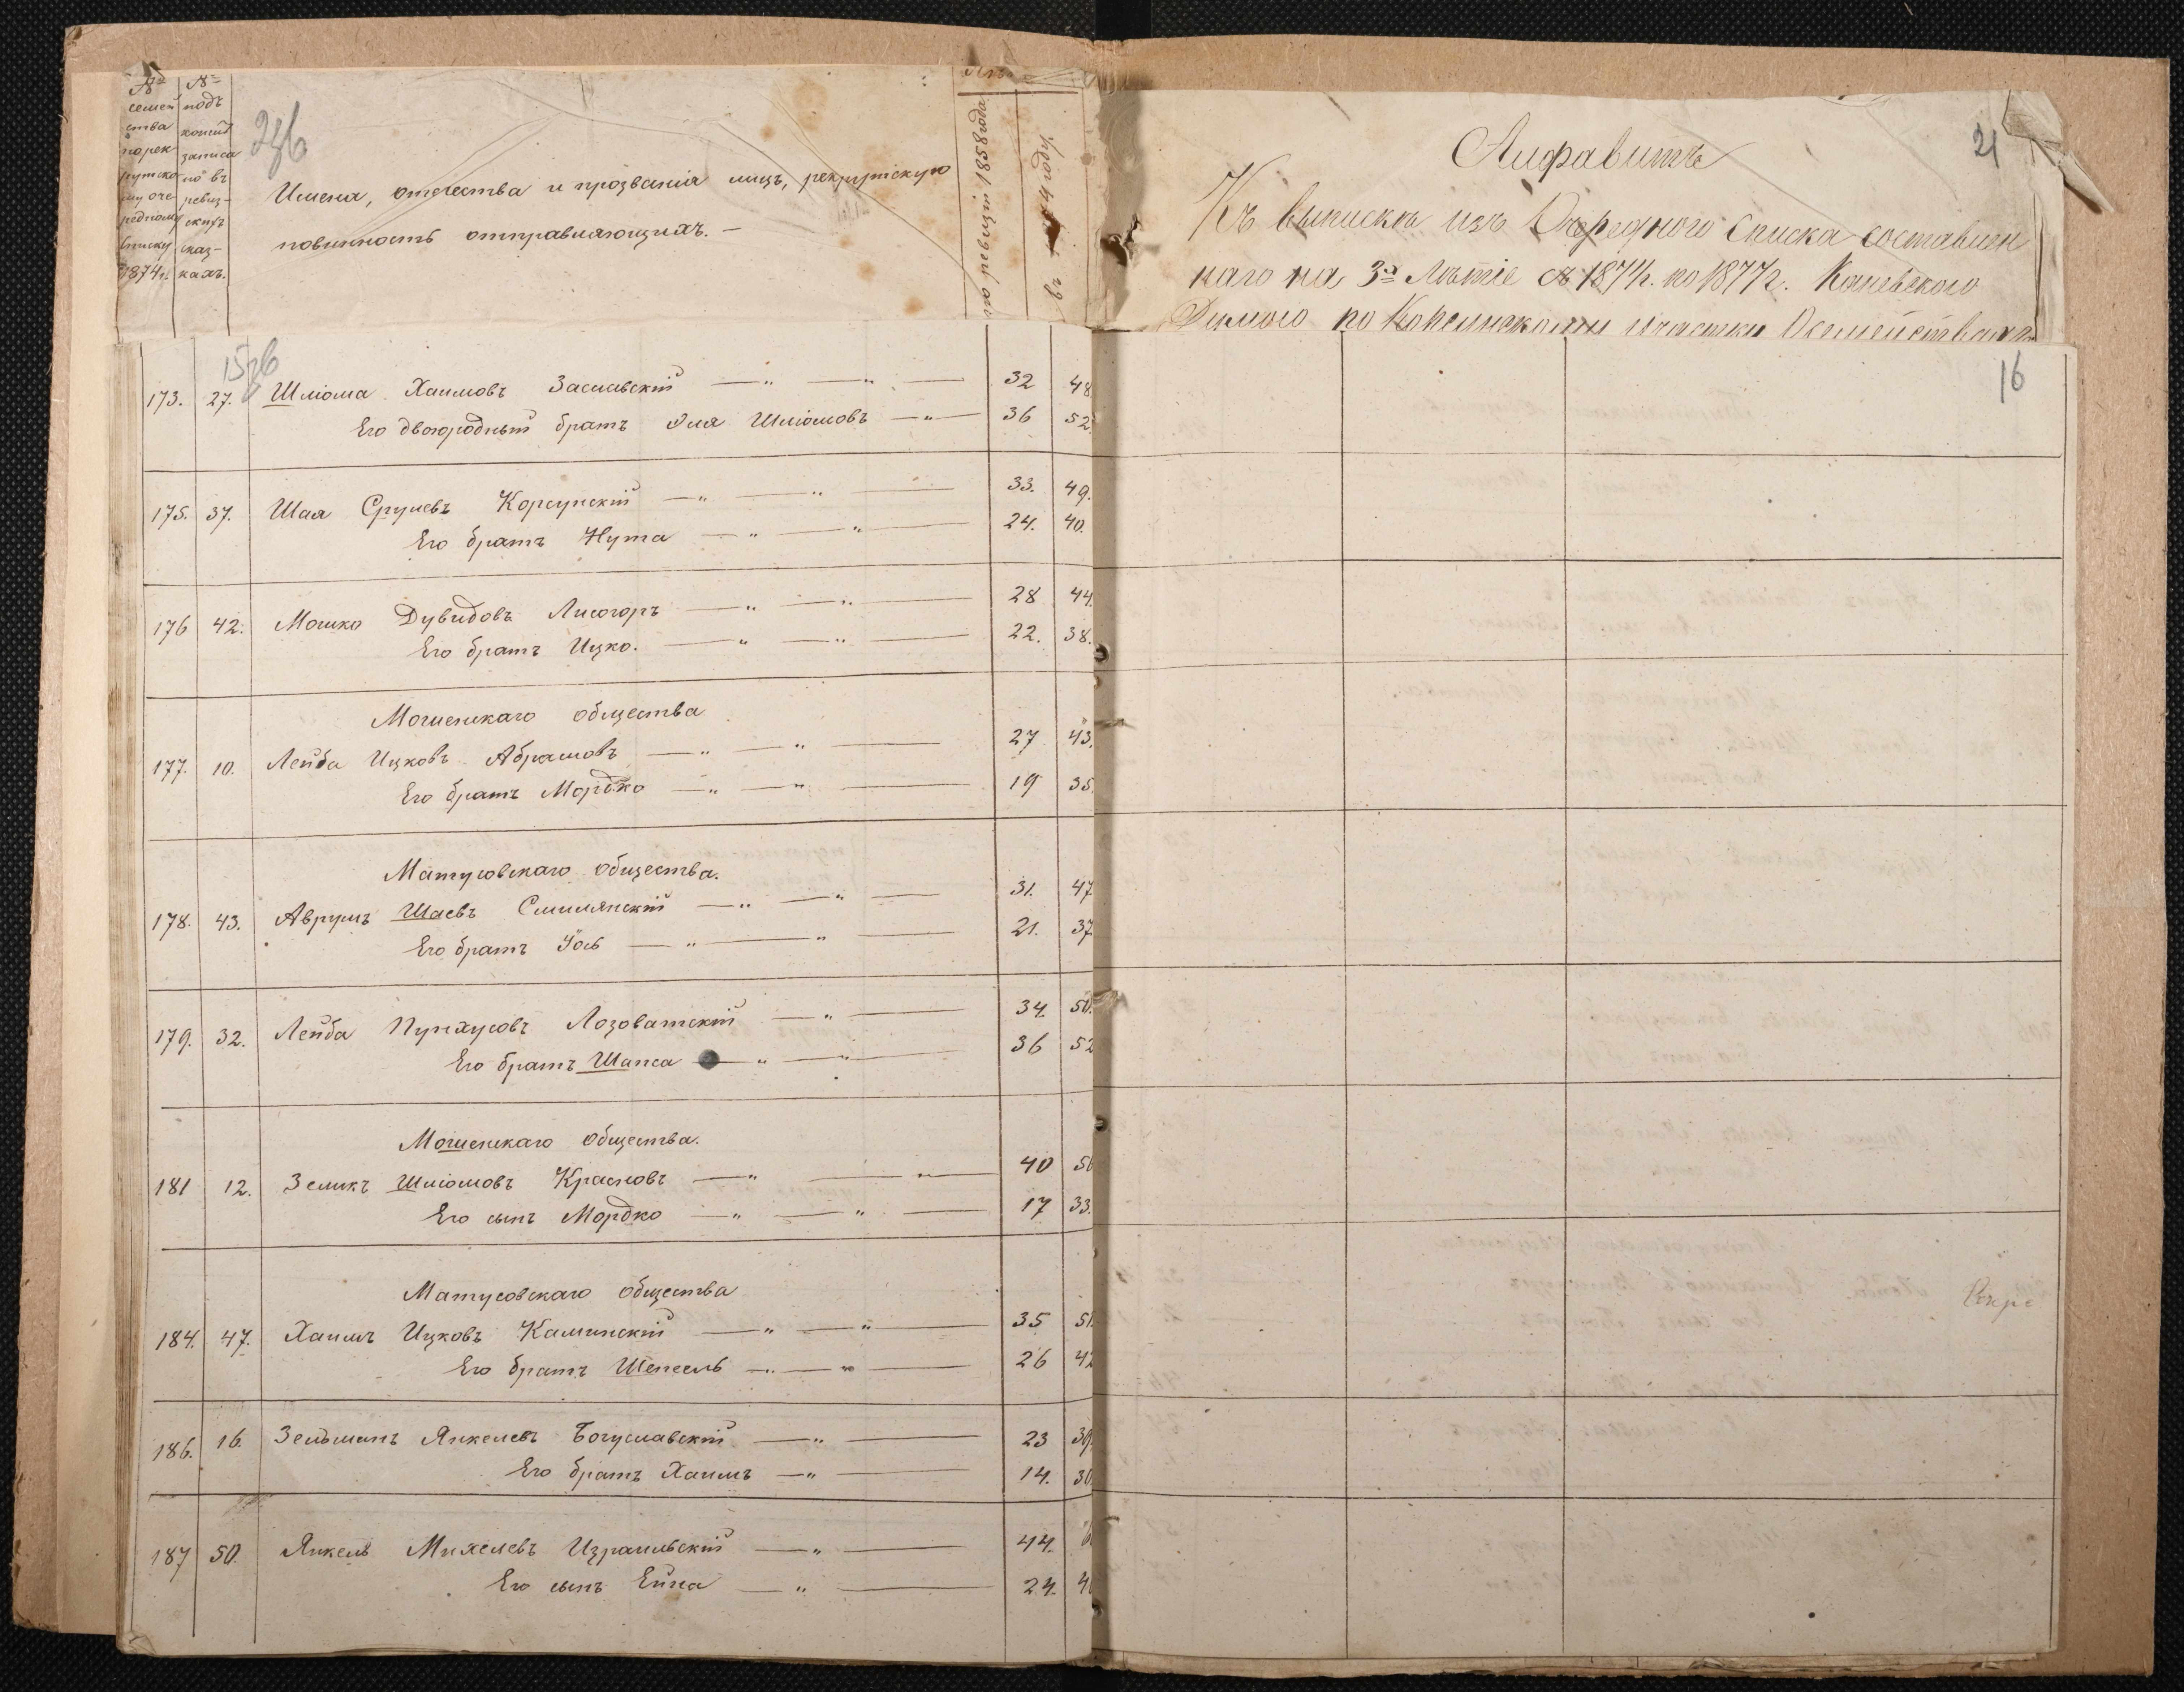 №
семей
ства
по рек
рутско
му оче
редному
списку
1874 г.
№
подъ
коимъ
записа
но въ
ревиз-
скихъ
сказ-
кахъ.
Имена, отечества и прозванія лицъ, рекрутскую
повинность отправляющихъ. —
по ревизіи 1858 года
году.
Алфавитъ
21
Къ выпискѣ изъ Очереднаго списка составлен
наго на 3х Лѣтіе съ 1874 г. по 1877 г. Каневского
по участку
15об
16
173. 27. Шліома Хаимовъ Заславскій — " — " — 32 48
Его двоюродный братъ Эля Шліомовъ — " — 36 52
175. 37. Шая Срулевъ Корсунскій — " — " — 33. 49.
Его братъ Нута — " — " — 24. 40.
176 42. Мошко Дувидовъ Лисогоръ — " — " — 28 44.
Его братъ Ицко. — " — " — 22. 38.
Мошенскаго общества
177. 10. Лейба Ицковъ Абрамовъ — " — " — 27 43.
Его братъ Мордко — " — " — 19 35.
Матусовскаго Общества.
178. 43. Аврумъ Шаевъ Смилянскій — " — " — 31. 47
Его братъ Іось — " — " — 21. 37
179. 32. Лейба Пунхусовъ Лозоватскій — " — 34. 50.
Его братъ Шапса — " — " — 36 52
Мошенскаго Общества.
181 12. Зеликъ Шліомовъ Красновъ — " — " — 40 56
Его сынъ Мордко — " — " — 17 33.
Матусовскаго Общества
184. 47. Хаимъ Ицковъ Каминскій — " — " — 35 51
Его братъ Шепсель — " — " — 26 42
186. 16. Зельманъ Янкелевъ Богуславскій — " — 23 39.
Его братъ Хаимъ — " — 14. 30
187 50. Янкель Михелевъ Израильскій — " — 44.
Его сынъ Ейна — " — 24. 4